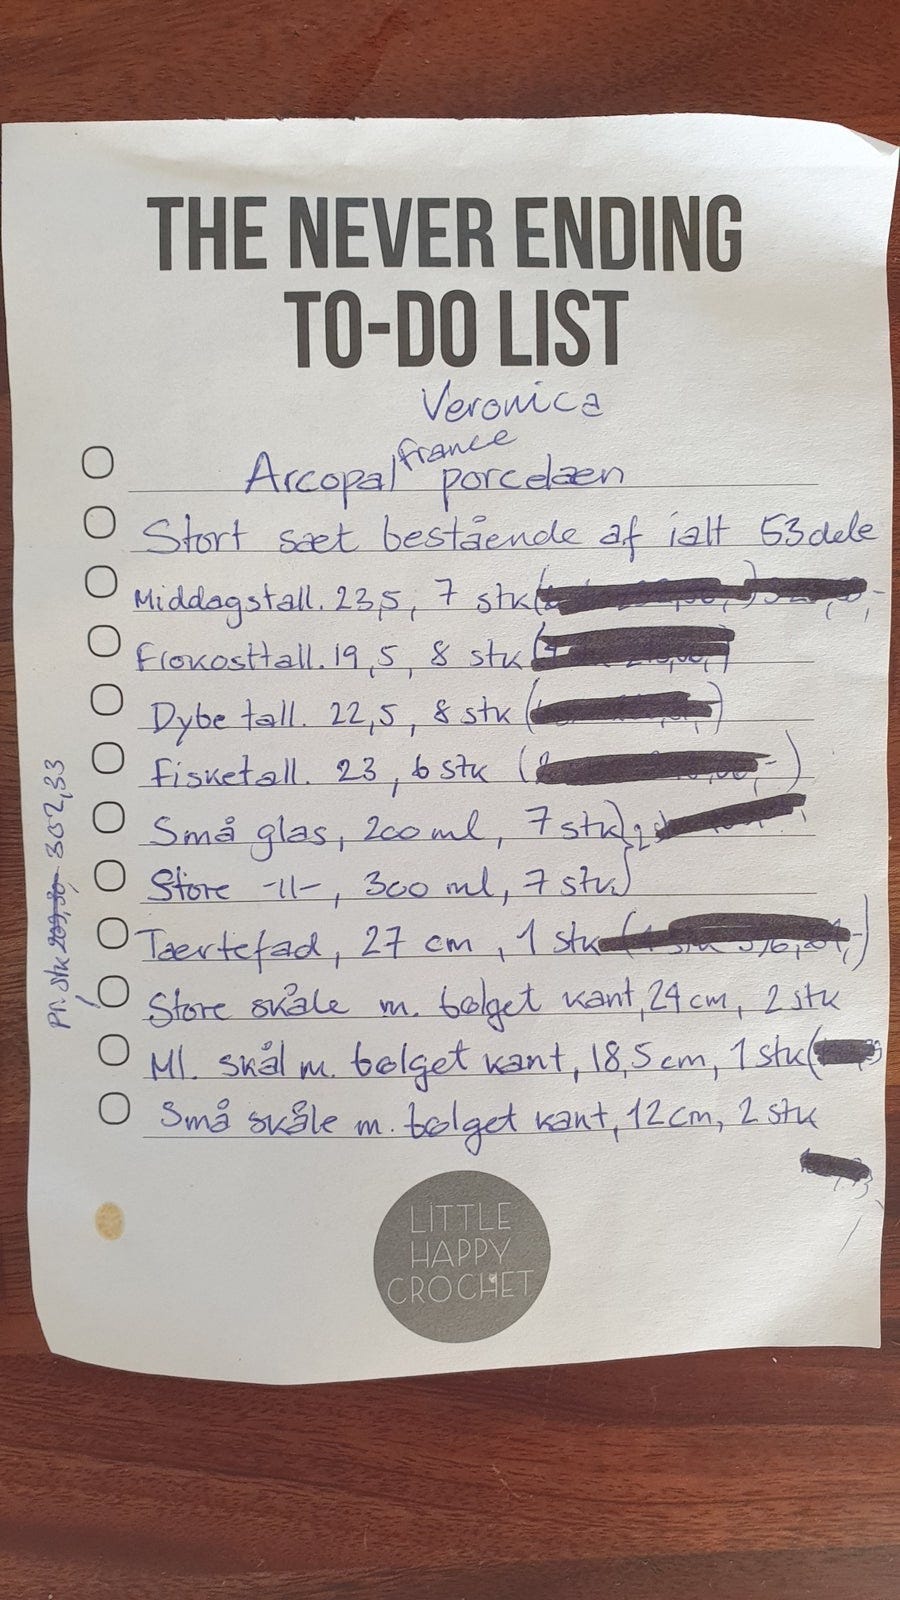 THE NEVER ENDING
TO-DO LIST
Veronica
france
Arcopal porcelæn
Stort sæt bestående af ialt 53 dele
Middagstall. 23,5, 7 stk (
Frokosttall. 19,5, 8 stk (
Dybe tall. 22,5, 8 stk ( )
Fisketall. 23, 6 stk ( )
Små glas, 200 ml, 7 stk)
Store -11-, 300 ml, 7 stk.)
Tærtefad, 27 cm, 1 stk ( )
Store skåle m. bølget kant, 24 cm, 2 stk
Ml. skål m. bølget kant, 18,5 cm, 1 stk (
Små skåle m. bølget kant, 12 cm, 2 stk
Pr. stk 302,33
LITTLE
HAPPY
CROCHET